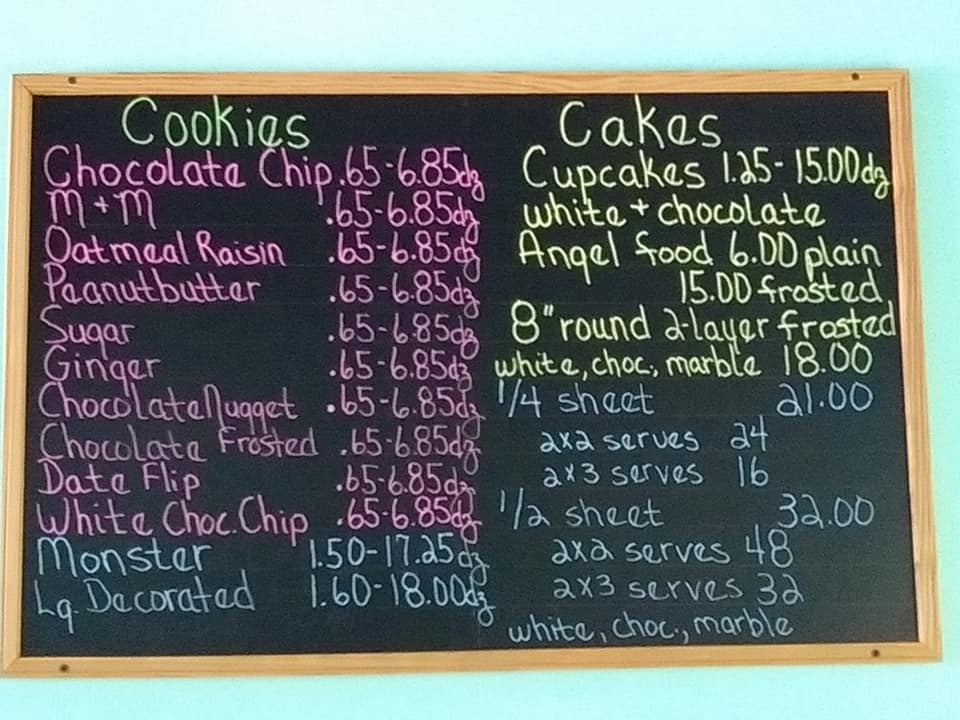 Cookies
Chocolate Chip .65-6.85dz
M+M .65-6.85dz
Oatmeal Raisin .65-6.85dz
Peanutbutter .65-6.85dz
Sugar .65-6.85dz
Ginger .65-6.85dz
Chocolate Nugget .65-6.85dz
Chocolate Frosted .65-6.85dz
Date Flip .65-6.85dz
White Choc. Chip .65-6.85dz
Monster 1.50-17.25dz
Lg. Decorated 1.60-18.00dz
Cakes
Cupcakes 1.25-15.00dz
white + chocolate
Angel food 6.00 plain
15.00 frosted
8" round 2-layer frosted
white, choc., marble 18.00
1/4 sheet 21.00
2x2 serves 24
2x3 serves 16
1/2 sheet 32.00
2x2 serves 48
2x3 serves 32
white, choc., marble